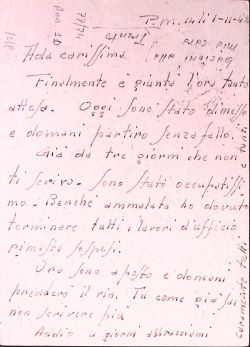 P.m. 14 li 1-11-42
Ada carissima
Finalmente è giunta l'ora tanto
attesa. Oggi sono stato dimesso
e domani partirò senza fallo.
Già da tre giorni che non
ti scrivo. Sono stato occupatissi
mo. Benché ammalato ho dovuto
terminare tutti i lavori d'ufficio
rimasti sospesi.
Ora sono a posto e domani
prenderò il via. Tu come già sai
non scrivere più
Addio a giorni abbracciami
caramente tutti e tanti
bacioni alla
mia cara